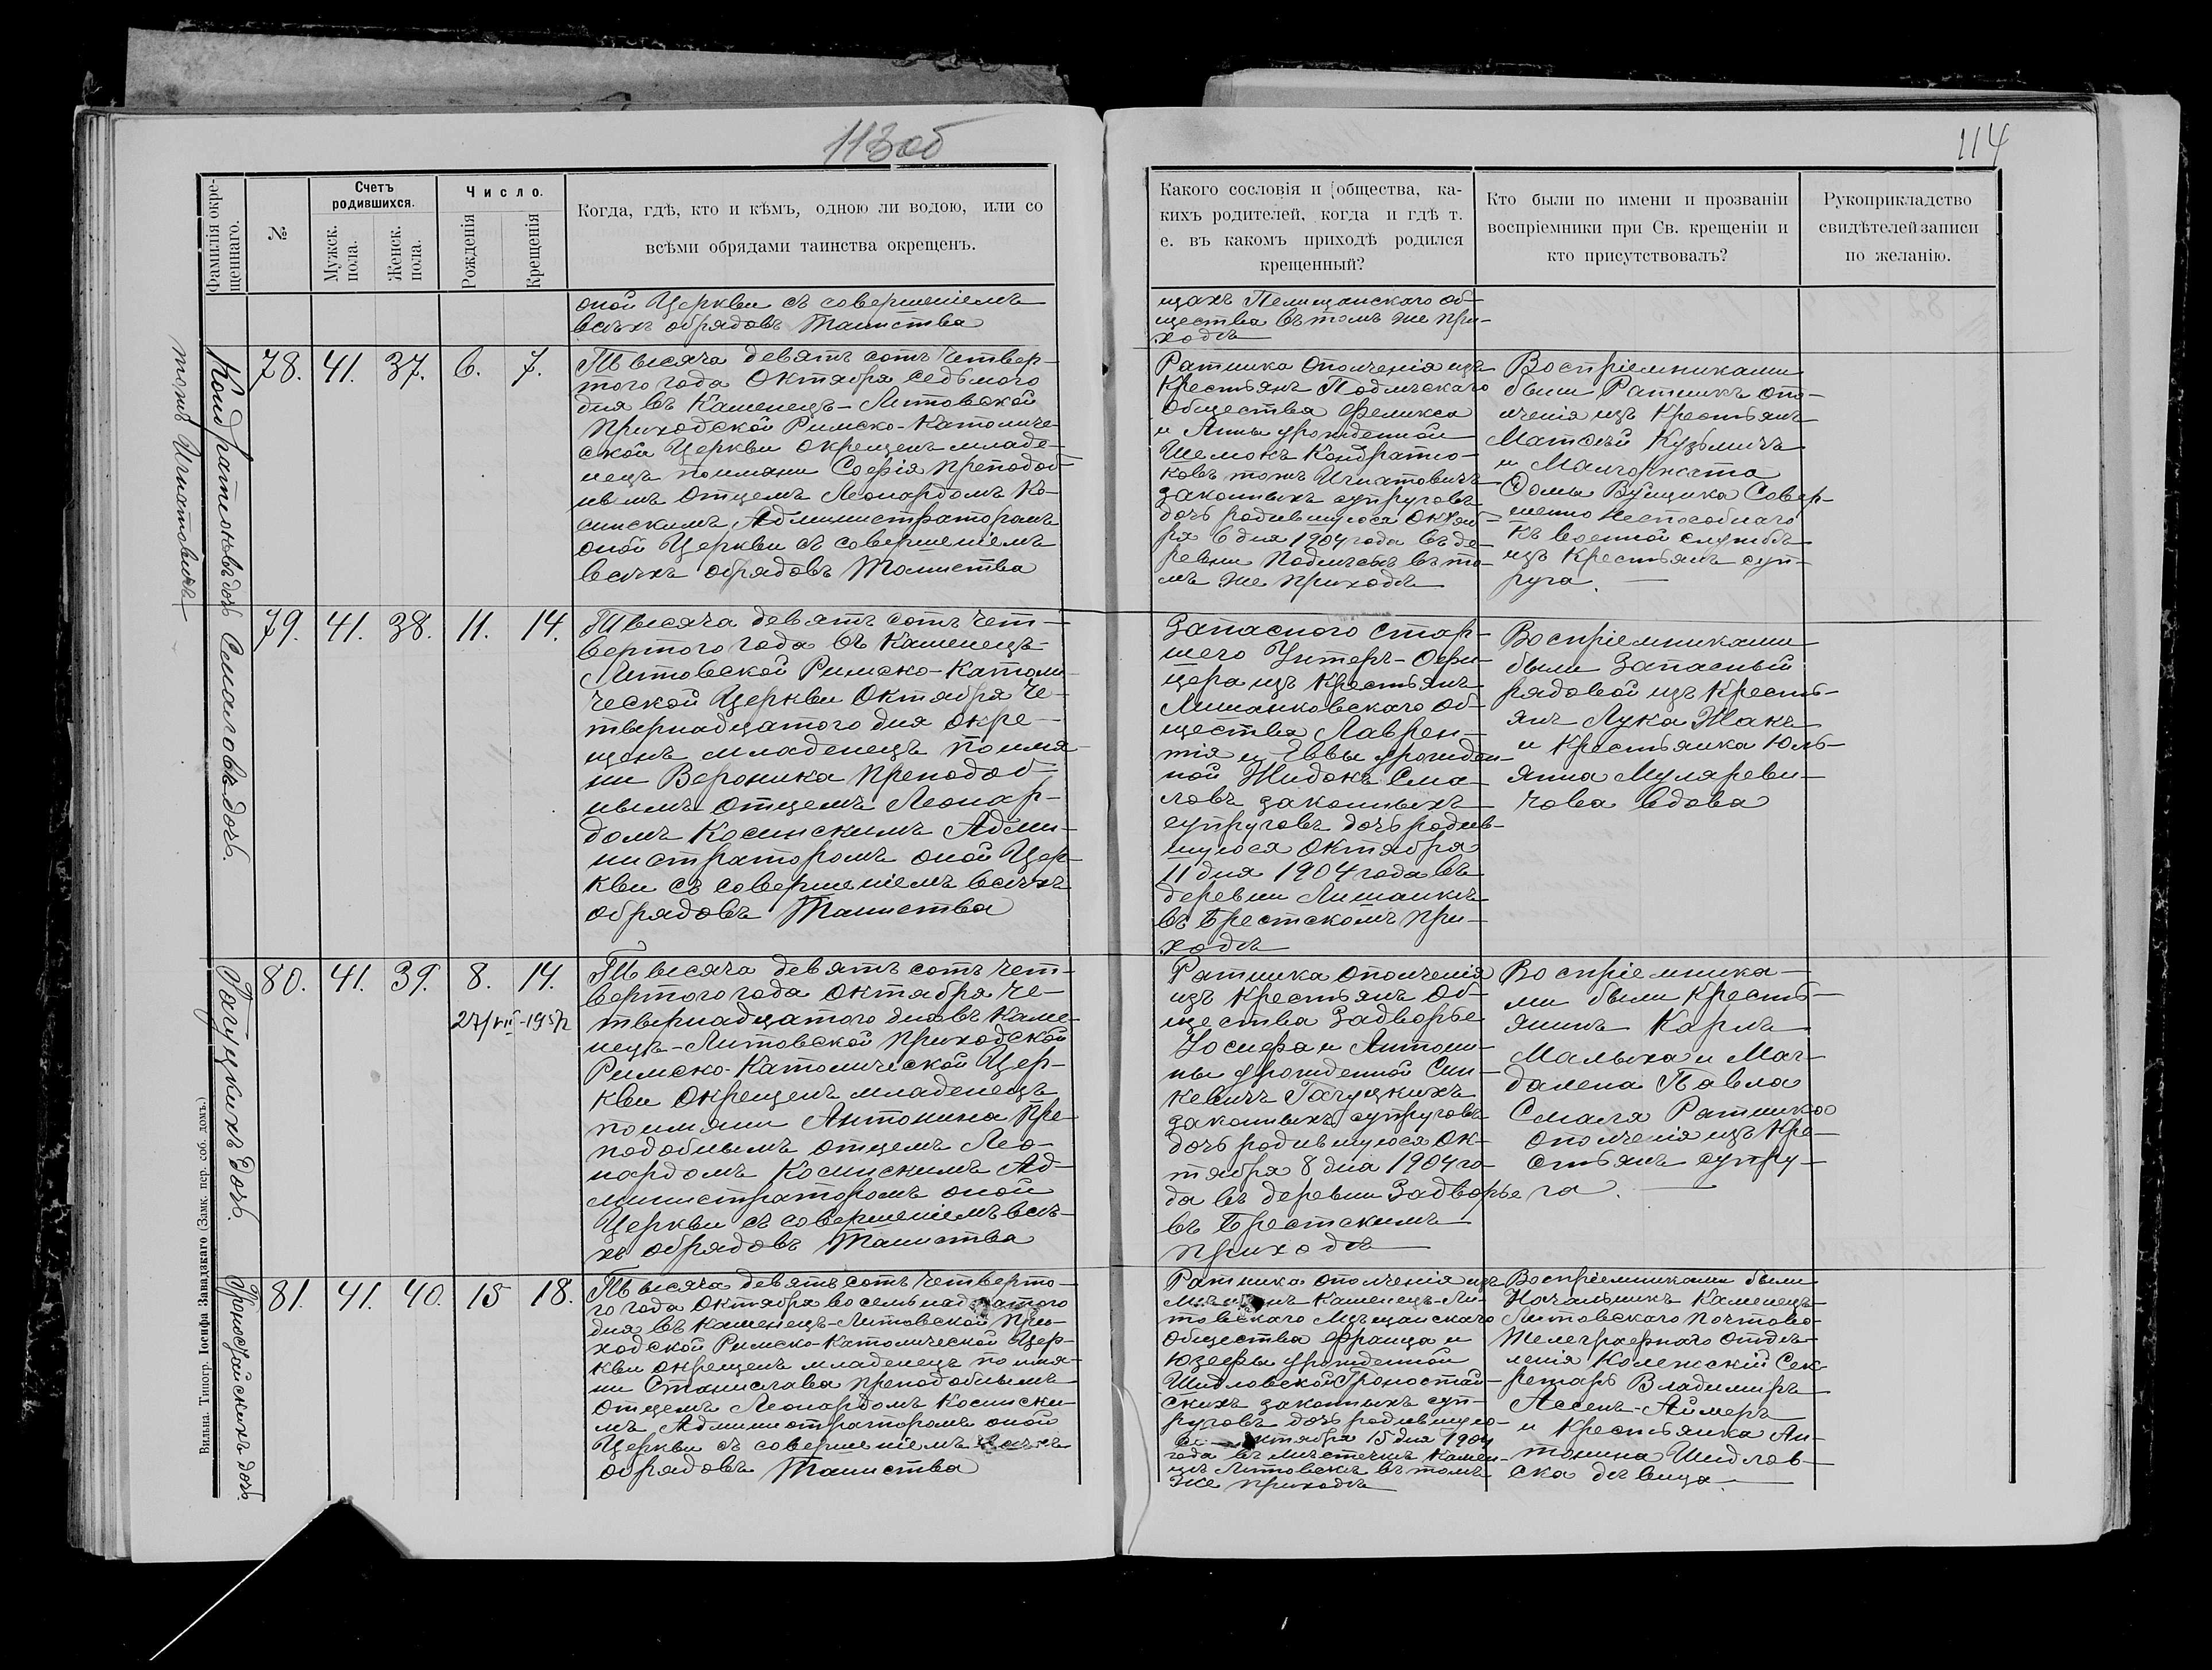 113об
114
Фамилія окре-
щеннаго.
№
Счетъ
родившихся.
Мужск.
пола.
Женск.
пола.
Число.
Рожденія
Крещенія
Когда, гдѣ, кто и кѣмъ, одною ли водою, или со
всѣми обрядами таинства окрещенъ.
Какого сословія и общества, ка-
кихъ родителей, когда и гдѣ т.
е. въ какомъ приходѣ родился
крещенный?
Кто были по имени и прозваніи
воспріемники при Св. крещеніи и
кто присутствовалъ?
Рукоприкладство
свидѣтелей записи
по желанію.
оной Церкви съ совершеніемъ
всѣхъ обрядовъ Таинства
щахъ Пелищанскаго об-
щества въ томъ же при-
ходѣ
Кондратюковъ дочь
тожъ Игнатовичъ
78. 41. 37. 6. 7.
Тысяча девятъ сотъ четвер-
того года Октября седьмого
дня въ Каменецъ-Литовской
Приходской Римско-Католиче-
ской Церкви окрещенъ младе-
нецъ поимяни Софія Преподоб-
нымъ Отцемъ Леонардомъ Ко-
синскимъ Администраторомъ
оной Церкви съ совершеніемъ
всѣхъ обрядовъ Таинства
Ратника Ополченія изъ
Крестьянъ Подлѣскаго
Общества Феликса
и Анны урожденной
Шемокъ Кондратю-
ковъ тожъ Игнатовичъ
законныхъ супруговъ
дочь родившуюся Октяб-
ря 6 дня 1904 года въ де-
ревни Подлѣсьѣ въ то-
мъ же приходѣ
Воспріемниками
были Ратникъ опо-
лченія изъ Крестьянъ
Матѳѣй Кузьмичъ
и Малгоржата
Ѳомы Вуйщика Совер-
шенно неспособнаго
къ военной службѣ
изъ Крестьянъ суп-
руга.
Смаловъ дочь.
79. 41. 38. 11. 14.
Тысяча девятъ сотъ чет-
вертого года въ Каменецъ-
Литовской Римско-Католи-
ческой Церкви Октября че-
твернадцатого дня окре-
щенъ младенецъ поимя-
ни Вероника Преподоб-
нымъ Отцемъ Леонар-
домъ Косинскимъ Адми-
нистраторомъ оной Цер-
кви съ совершеніемъ всѣхъ
обрядовъ Таинства
Запасного Стар-
шего Унтеръ-Офи-
цера изъ Крестьянъ
Лишанковскаго об-
щества Лаврен-
тія и Еввы урожден-
ной Жидокъ Сма-
ловъ законныхъ
супруговъ дочь родив-
шуюся Октября
11 дня 1904 года въ
деревни Лишанки
въ Брестскомъ при-
ходѣ
Воспріемниками
были Запасный
рядовой изъ Кресть-
янъ Лука Жакъ
и Крестьянка Юль-
янна Муляреви-
чова вдова
Гагуцкихъ дочь.
80. 41. 39. 8. 14.
27/VII-1957
Тысяча девятъ сотъ чет-
вертого года Октября че-
твернадцатого дня въ Каме-
нецъ-Литовской Приходской
Римско-Католической Цер-
кви окрещенъ младенецъ
поимяни Антонина Пре-
подобнымъ отцемъ Лео-
нардомъ Косинскимъ Ад-
министраторомъ оной
Церкви съ совершеніемъ всѣ-
хъ обрядовъ Таинства
Ратника ополченія
изъ Крестьянъ Об-
щества Задворье
Іосифа и Антони-
ны урожденной Син-
кевичъ Гагуцкихъ
законныхъ супруговъ
дочь родившуюся Ок-
тября 8 дня 1904 го-
да въ деревни Задворье
въ Брестскимъ
приходѣ
Воспріемника-
ми были Кресть-
янинъ Карлъ
Малыха и Маг-
далена Павла
Смаля Ратника
ополченія изъ Кре-
стьянъ супру-
га.
Гроностайскихъ дочь.
81. 41. 40. 15 18.
Тысяча девятъ сотъ четверто-
го года Октября восемьнадцатого
дня въ Каменецъ-Литовской При-
ходской Римско-Католической Цер-
кви окрещенъ младенецъ поимя-
ни Станислава Преподобнымъ
Отцемъ Леонардомъ Косински-
мъ Администраторомъ оной
Церкви съ совершеніемъ всѣхъ
обрядовъ Таинства
Ратника ополченія изъ
Каменецъ-Ли-
товскаго Мѣщанскаго
Общества Франца и
Юзефы урожденной
Шидловской Гроностай-
скихъ законныхъ суп-
руговъ дочь родившую-
ся Октября 15 дня 1904
года въ мѣстечкѣ Камен-
цѣ Литовскѣ въ томъ
же приходѣ
Воспріемниками были
Начальникъ Каменецъ-
Литовскаго Почтово-
Телеграфнаго отдѣ-
ленія Колежскій Сек-
ретарь Владимиръ
Ассенъ-Аймеръ
и Крестьянка Ан-
тонина Шидлов-
ска дѣвица.
Вильна. Типогр. Іосифа Завадзкаго (Замк. пер. соб. домъ.)